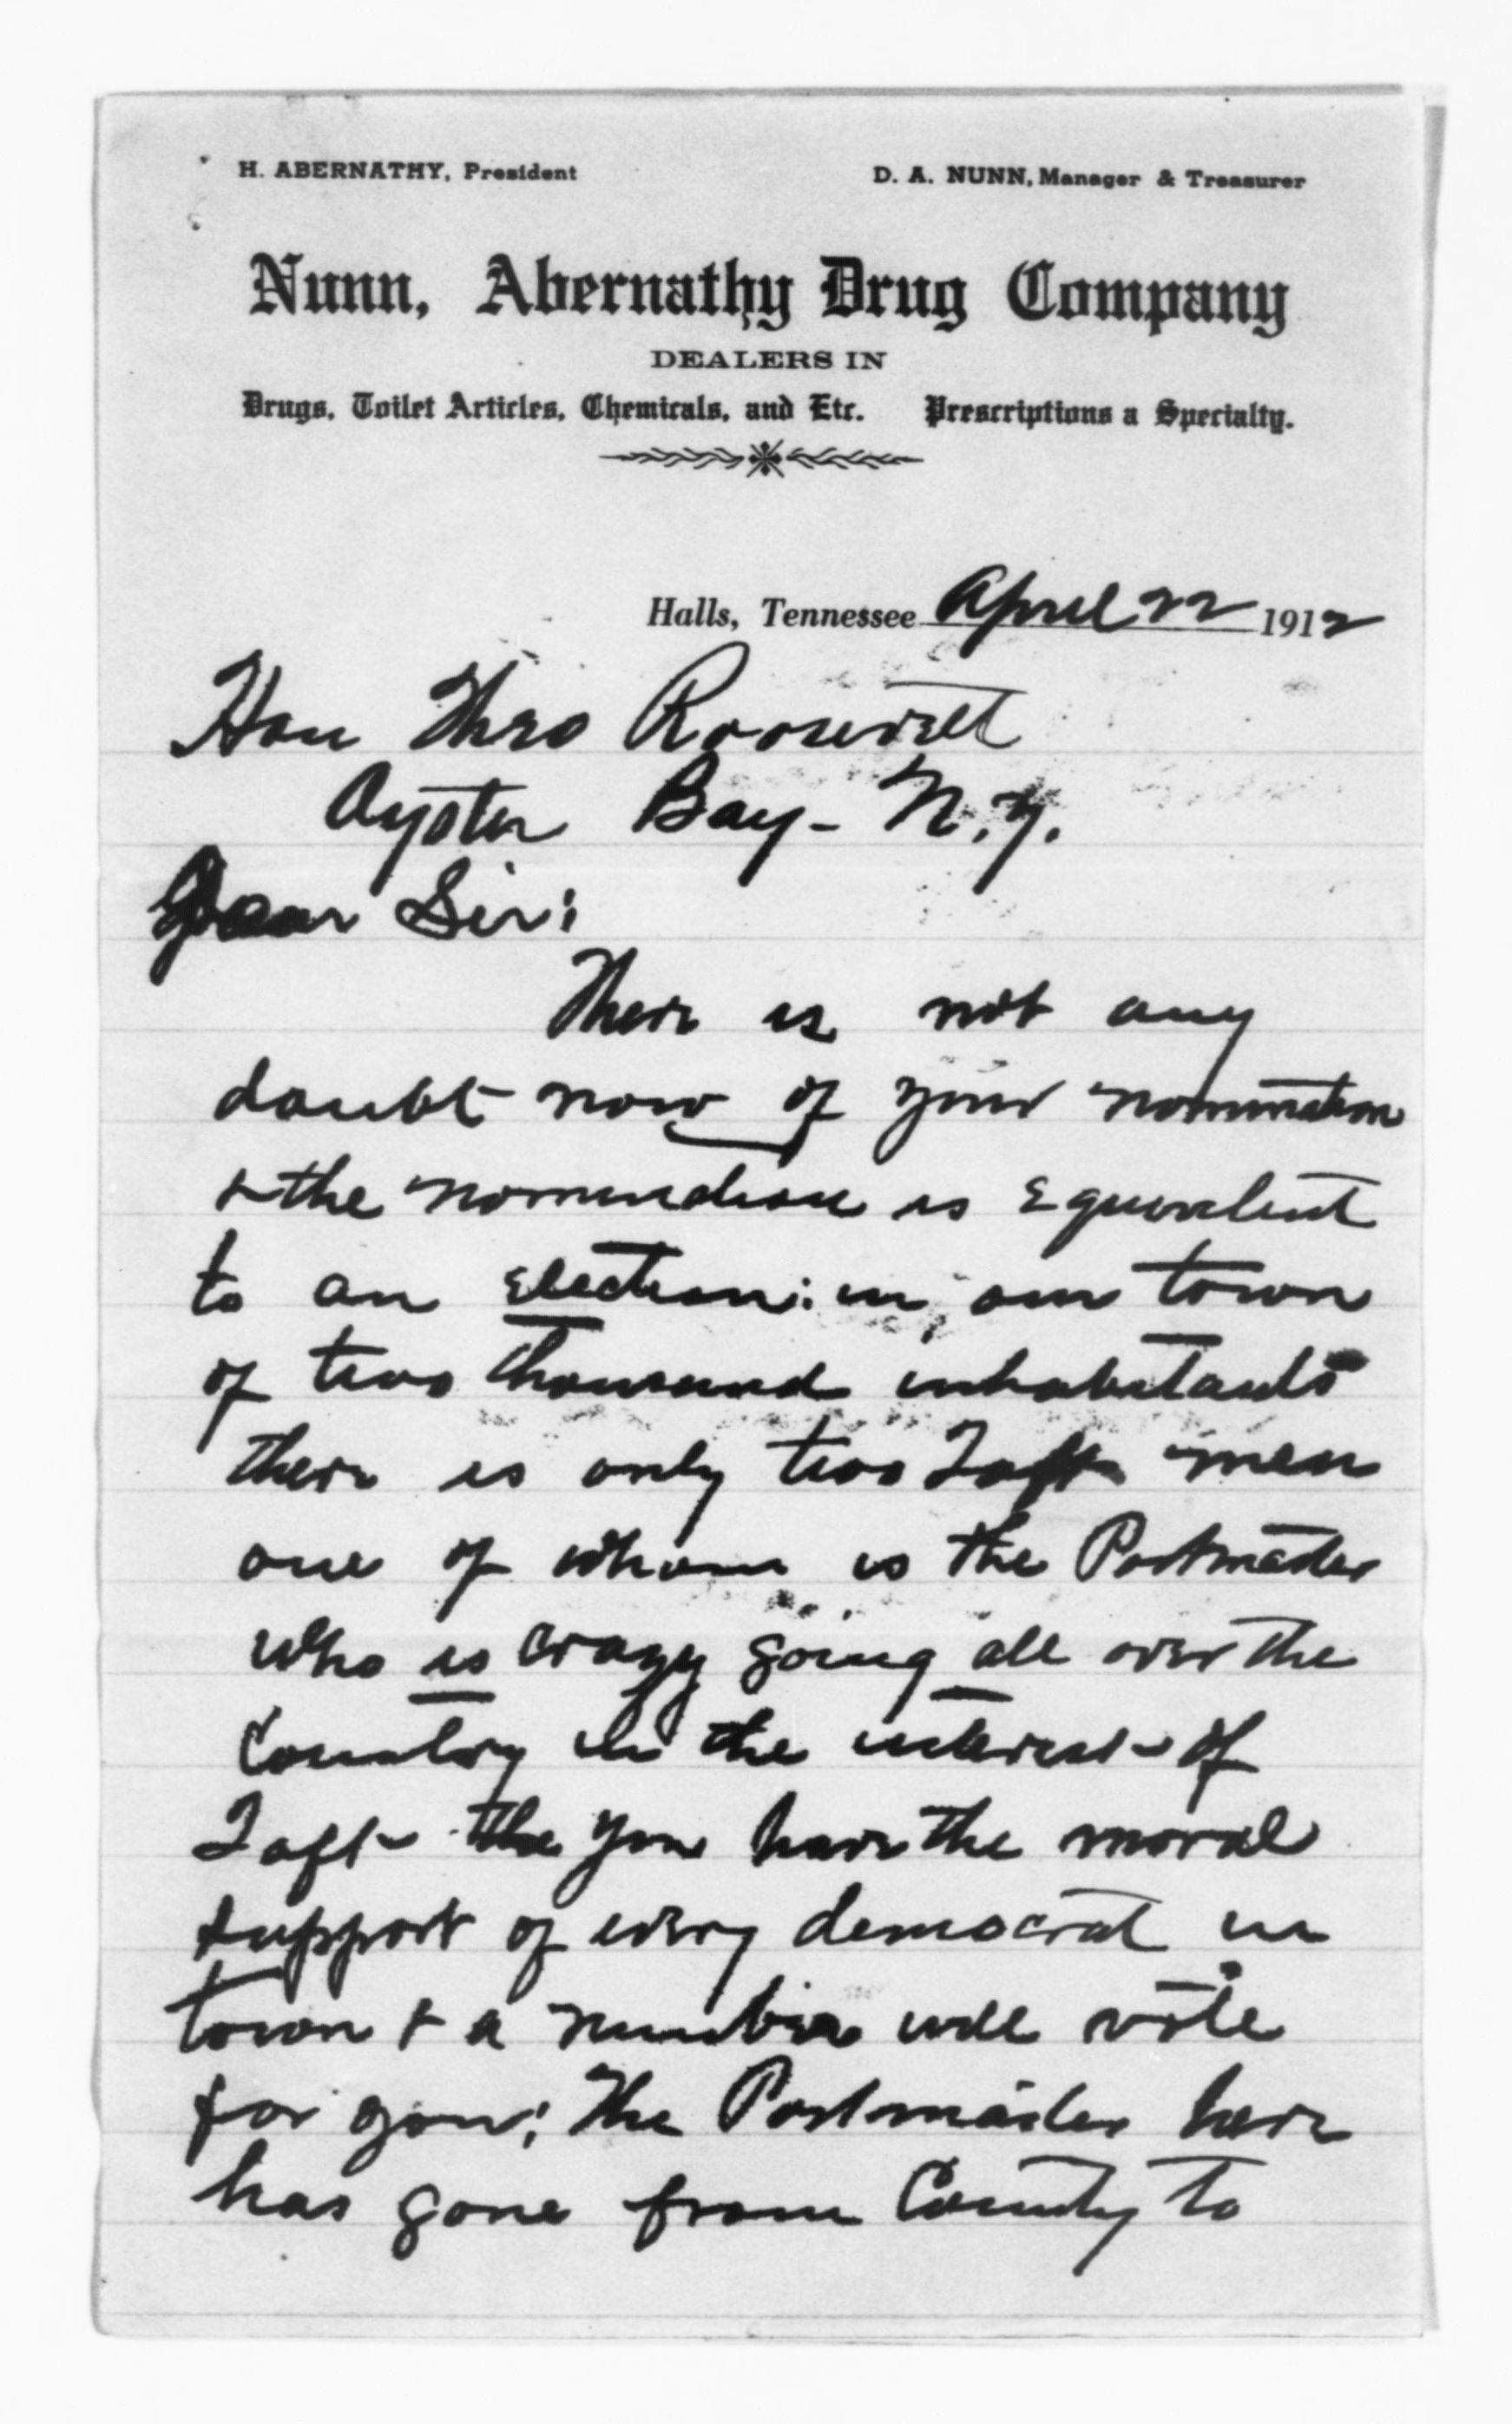 H. ABERNATHY, President D. A. NUNN, Manager & Treasurer
Nunn, Abernathy Drug Company
DEALERS IN
Drugs, Toilet Articles, Chemicals, and Etc. Prescriptions a Specialty.
Halls, Tennessee April 22 1912
Hon Theo Roosevelt
Oyster Bay - N.Y.
Dear Sir:
There is not any
doubt now of your nomination
& the nomination is equivalent
to an election: in our town
of two thousand inhabitants
there is only two Taft men
one of whom is the Postmaster
who is crazy going all over the
Country in the interest of
Taft - the you have the moral
support of every democrat in
town & a number will vote
for you; The Postmaster here
has gone from County to